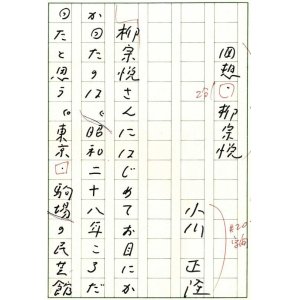 回想・柳宗悦
小川 正隆
柳宗悦さんにはじめてお目にか
かったのは、昭和二十八年ころだ
ったと思う。東京・駒場の民芸館